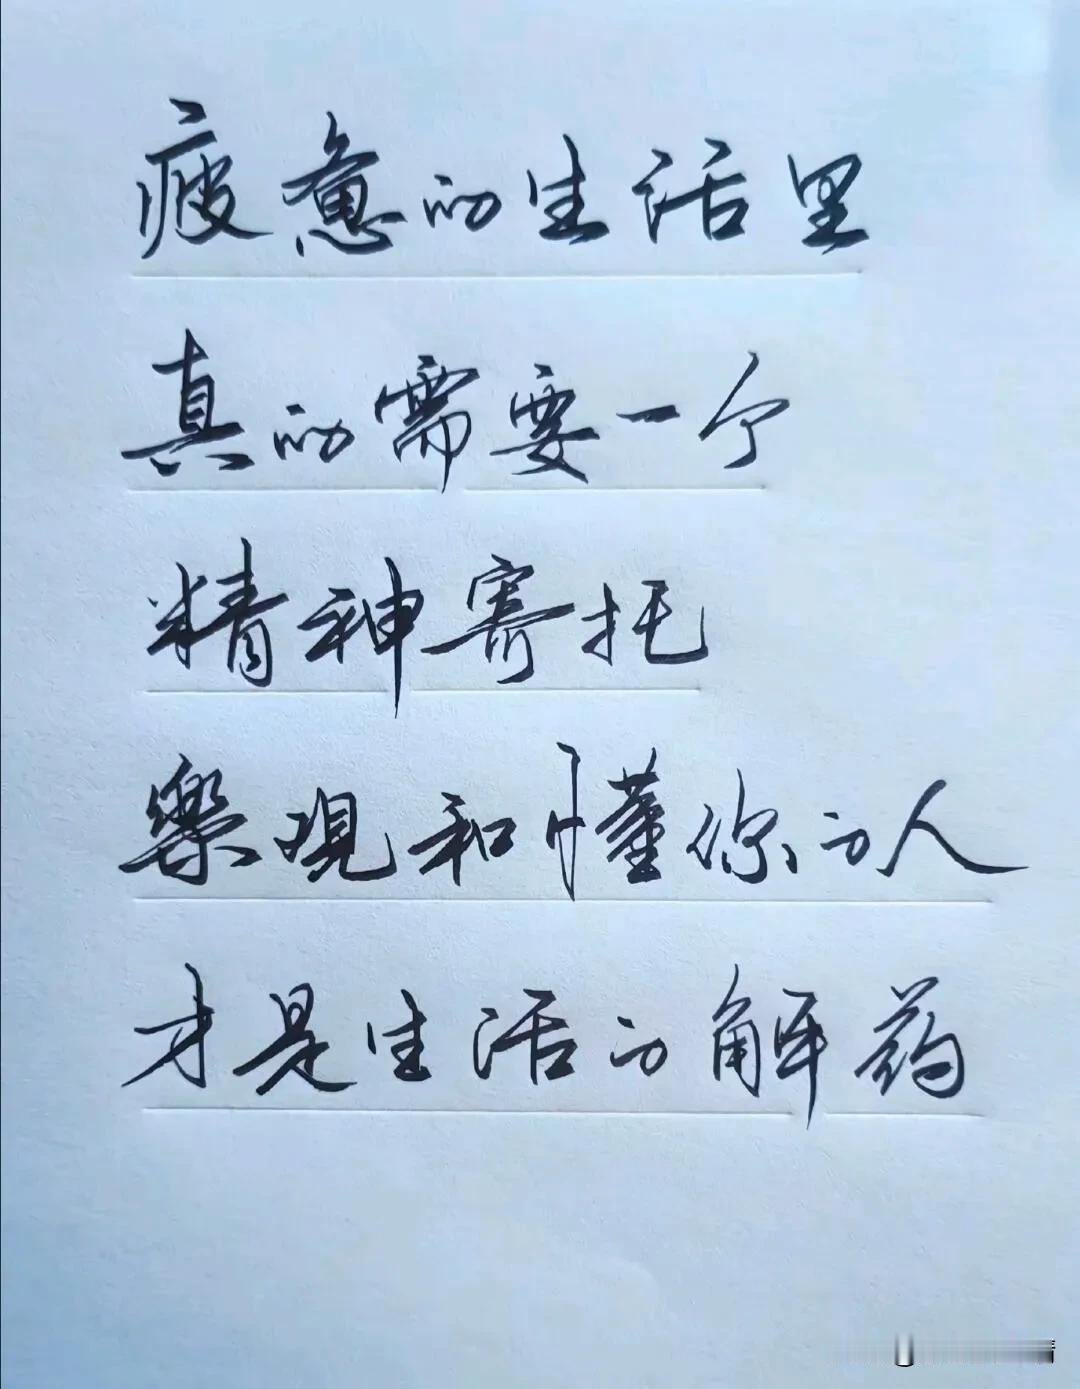 疲惫的生活里
真的需要一个
精神寄托
樂观和懂你的人
才是生活的解药